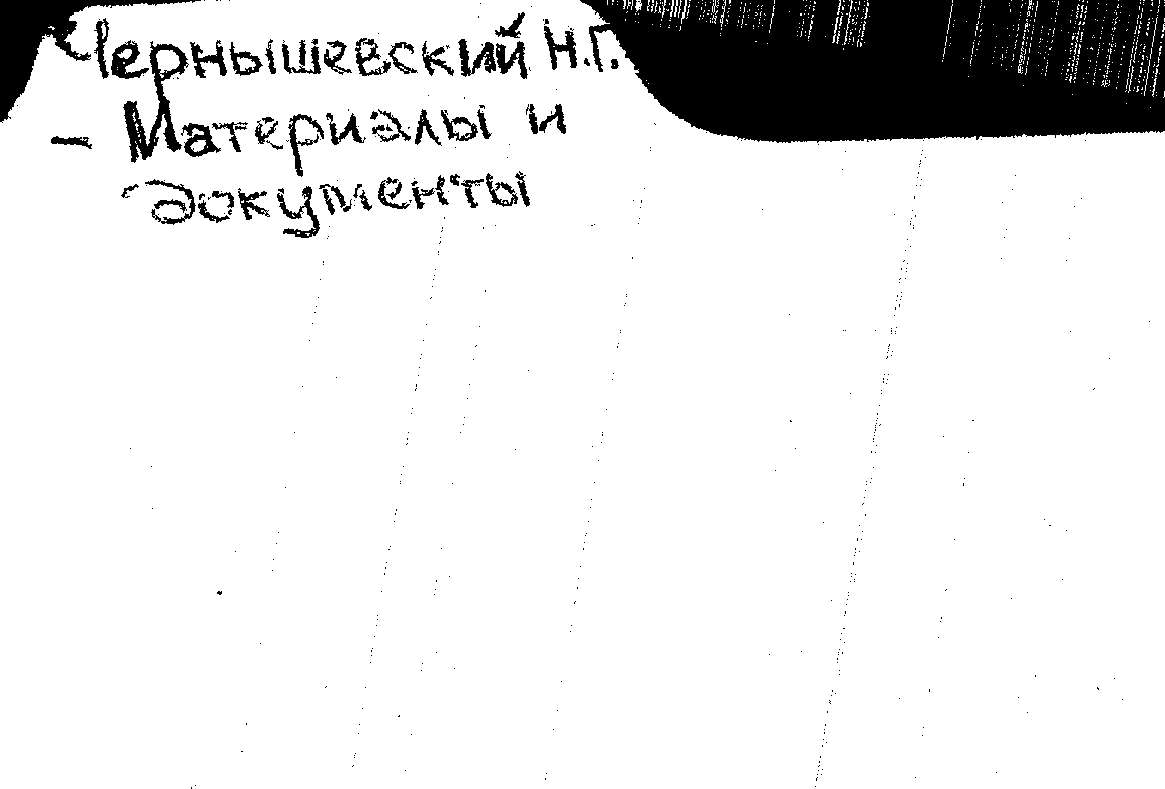 Чернышевский Н.Г.
- Материалы и
документы